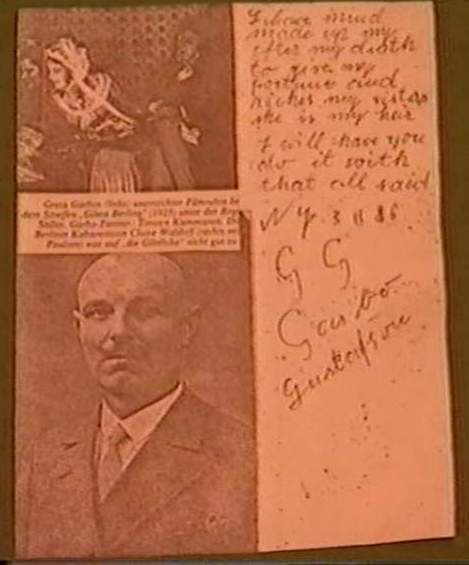 Greta Garbos (links) unerreichter Filmruhm be
dem Streifen „Gösta Berling" (1925) unter der Reg
Stiller. Garbo-Partner:
Berliner Kabarettistin Claire Waldoff (rechts
war auf „die Göttliche" nicht gut zu
I have mind
made up my
after my death
to give my
fortune and
riches my sister
she is my heir
I will have you
do it with
that all said
N Y. 3 11 86
G G
Garbo
Gustafson